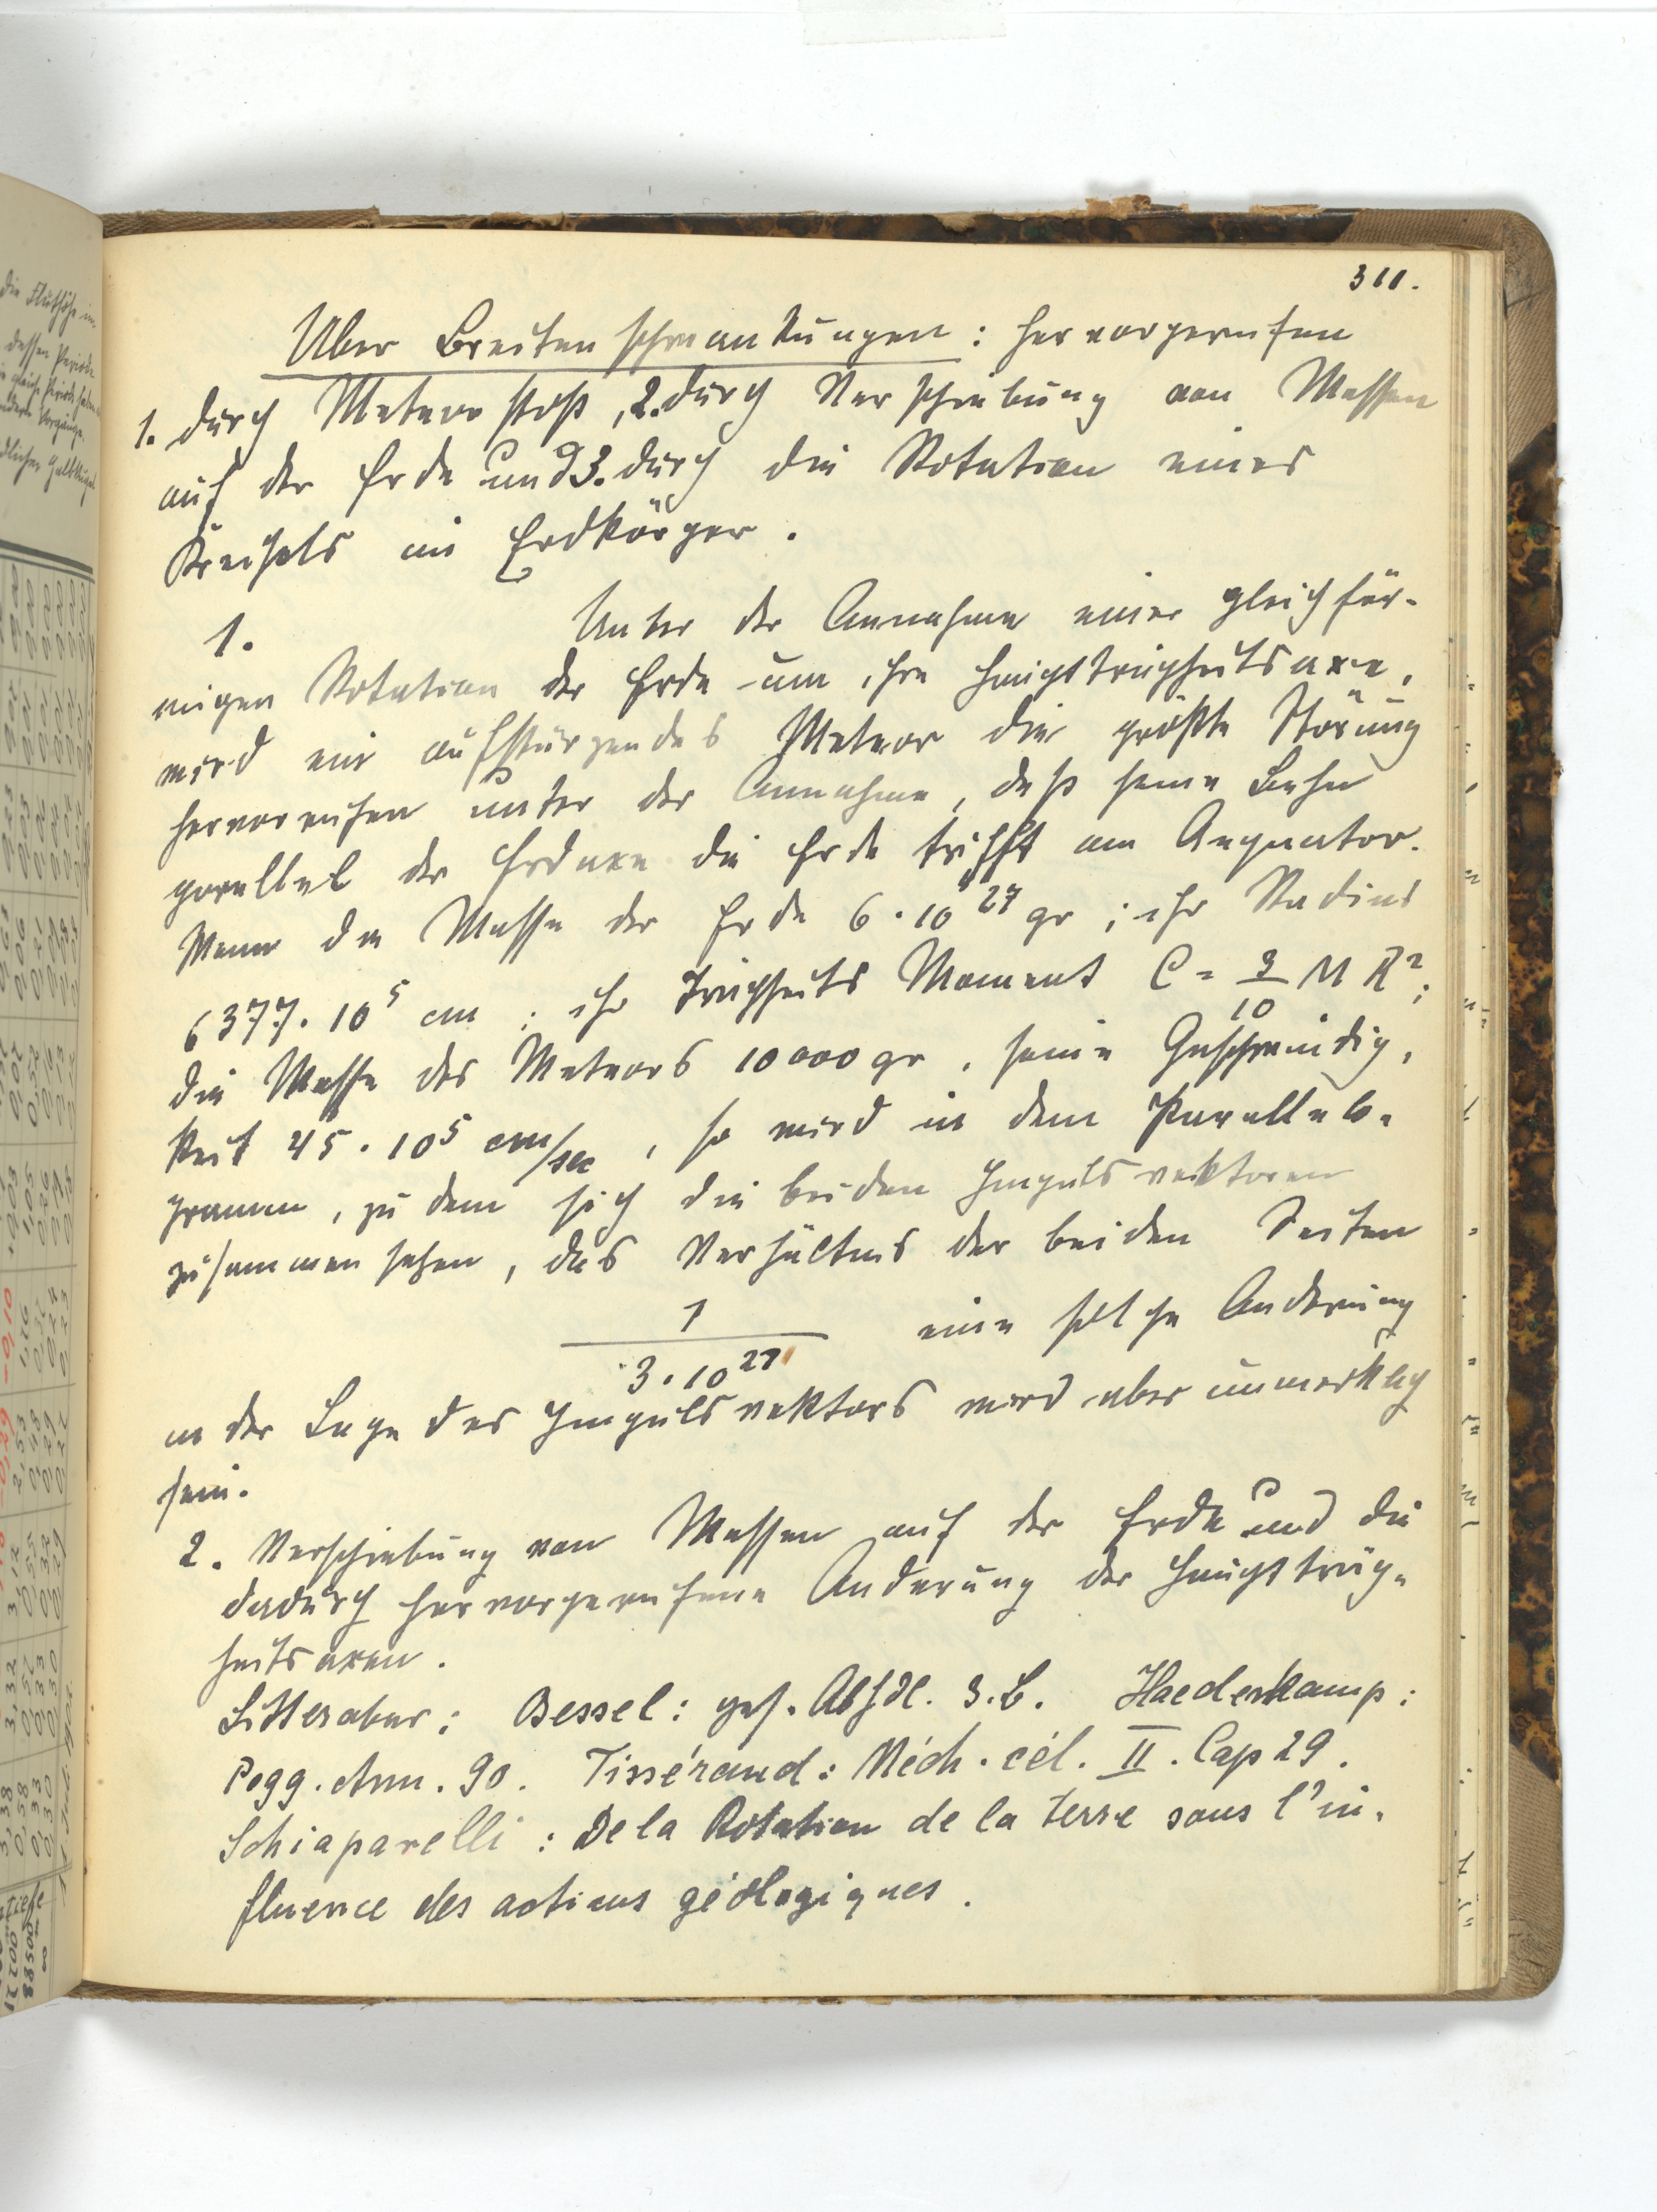 311.
Über Breitenschwankungen: hervorgerufen
1. durch Meteorstoß, 2. durch Verschiebung von Massen
auf der Erde und 3. durch die Rotation eines
Kreisels im Erdkörper.
1. Unter der Annahme einer gleichför-
migen Rotation der Erde um ihre Hauptträgheitsaxe,
wird ein aufstürzendes Meteor die größte Störung
hervorrufen unter der Annahme, daß seine Bahn
parallel der Erdaxe die Erde trifft am Aequator.
Wenn die Masse der Erde 6·10^27 gr; ihr Radius
6377·10^5 cm; ihr Trägheits Moment C = 3/10 M R²;
die Masse des Meteors 10000 gr, seine Geschwindig-
keit 45·10^5 cm/sec, so wird in dem Parallelo-
gramm, zu dem sich die beiden Impulsvektoren
zusammensetzen, das Verhältnis der beiden Seiten
1 / 3·10^27 eine solche Anderung
in der Lage des Impulsvektors wird aber unmerklich
sein.
2. Verschiebung von Massen auf der Erde und die
dadurch hervorgerufene Anderung der Hauptträg-
heitsaxen.
Litteratur: Bessel: ges. Abhdl. 3. B. Haedenkamp:
Pogg. Ann. 90. Tissérand: Méch. cél. II. Cap 29.
Schiaparelli: De la Rotation de la terre sous l'in-
fluence des actions géologiques.
die Fluthöhe
dessen Periode